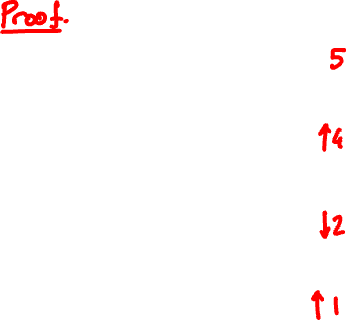 Proof.
5
↑4
↓2
↑1